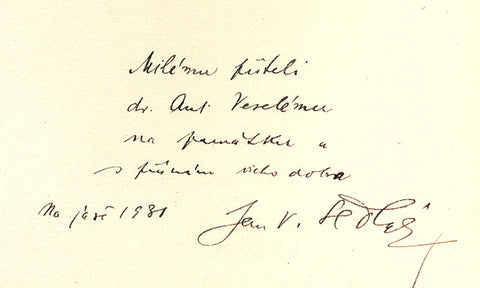 Milému příteli
dr. Ant. Veselému
na památku a
s přáním všeho dobra
Na jaře 1931 Jan V. Sedlák